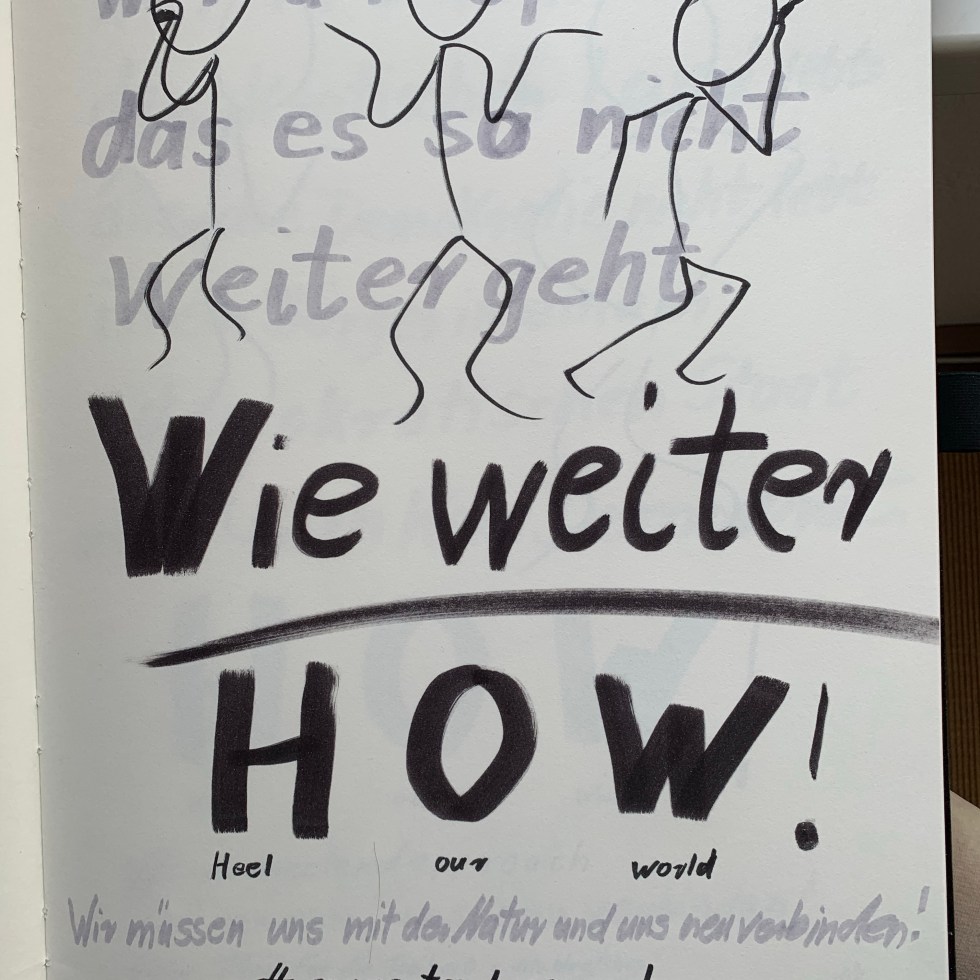 das es so nicht
weiter geht..
Wie weiter
HOW!
Heel our world
Wir müssen uns mit der Natur und uns neu verbinden!